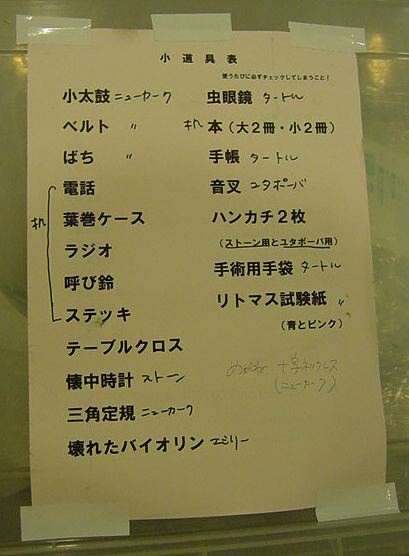 小道具表
使うたびに必ずチェックしてしまうこと！
小太鼓 ニューカーク
ベルト 〃
ばち 〃
机
電話
葉巻ケース
ラジオ
呼び鈴
ステッキ
テーブルクロス
懐中時計 ストーン
三角定規 ニューカーク
壊れたバイオリン エミリー
虫眼鏡 タートル
机 本（大２冊・小２冊）
手帳 タートル
音叉 ユタポーバ
ハンカチ２枚
（ストーン用とユタポーバ用）
手術用手袋 タートル
リトマス試験紙 〃
（青とピンク）
めがね 十字ネックレス
（ニューカーク）